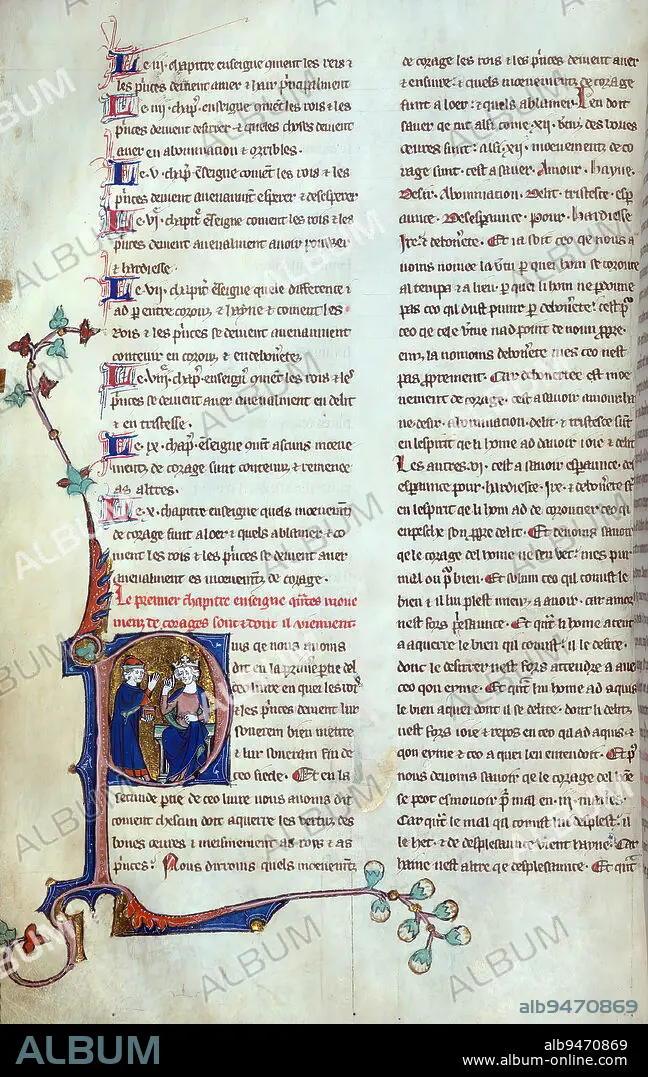 Le iii. chapitre enseigne quient les rois &
les princes deivent amer & hair principalment
Le iiii. chap. enseigne quient les rois & les
princes deivent desirer & queles choses deivent
auer en abominacion & orribles.
Le v. chap. enseigne coment les rois & les
princes deivent auenaument esperer & desesperer
Le vi. chapitre enseigne coment les rois & les
princes deivent auenalment auoir poour
& hardiesce.
Le vii. chapitre enseigne quele difference &
ad entre corouz & hayne & coment les
rois & les princes se deivent auenaument
contenir en corouz & en debonerete
Le viii. chap. enseigne quient les rois & les
princes se deivent auer auenalment en delit
& en tristesce.
Le ix. chap. enseigne quant ascuns moeue
menz de corage sunt contenuz & remenee
as altres.
Le x. chapitre enseigne quels moeuemenz
de corage sunt a loer & quels ablamer & co
ment les rois & les princes se deivent auer
auenalment es moeuemenz de corage.
Le premier chapitre enseigne quantes moeue
menz de corages sont & dont il vienent
Puis qe nous auoms
dit en la primere ptie del
ceo liure en quei les rois
& les princes deivent lur
souerein bien mettre
& lur souerain fin de
ceo siecle. Et en la
secunde ptie de ceo liure nous auoms dit
coment chescun doit aquerre les vertuz des
bones oeuures & meismement as rois & as
princes. Nous dirroms quels moeuemenz
de corage les rois & les princes deivent auer
& ensuire: & quels moeuemenz de corage
sunt a loer: & quels ablamer. Len doit
sauer qe tut alsi come .xii. vertuz des bones
oeuures sunt: alsi .xii. moeuemenz de co
rage sunt: cest a sauer. Amour. Hayne.
Desir. Abominacion. Delit. tristesce. esp
aunce. Desesperaunce. Poour. Hardiesse
Ire. & debonerete. Et ia soit ceo qe nous a
uoms nomee la vertu par quei hom se coroute
al temps & a lieu par quei hom ne pardoune
pas ceo qi dust punir par debonerete: cest pur
ceo qe cele vertue nad point de noun propre.
einz la nomoms debonerete mes ceo nest
pas proprement. Car debonerete est moe
uement de corage. cest a sauoir amour ha
ne. desir. abominacion. delit. & tristesce sunt
en lespirit qe li home ad dauoir ioie & delit
Les autres .vi. cest a sauoir esperaunce. des
esperaunce. poour. hardiesce. Ire. & debonerete sunt
en lespirit qe li home ad de coroucier ceo qi
enpesche son propre delit. Et deuoms sauoir
qe le corage del home ne se moet: mes pur
mal ou pur bien. Et solum ceo qil conust le
bien & il lui plest mieuz a auoir. car amor
nest fors plesaunce. Et quant li home atent
a aquerre le bien qil conust: il le desire.
donc le desirer nest fors attendre a auer
ceo qon eyme. Et quant li home ad aquis
le bien aquel dont il se delite. dont li delit
nest fors ioie & repos en ceo qil ad aquis. &
qon eyme & ceo a quei len entendoit. Et puis
nous deuoms sauoir qe le corage del home
se poet esmouoir par mal en .iii. maneres.
Car quant le mal qil conust lui desplest: il
le het. & de desplesaunce vient hayne. Car
haine nest altre qe desplesaunce. Et quant
ALBUM
alb9470869
ALBUM
alb9470869
www.album-online.com